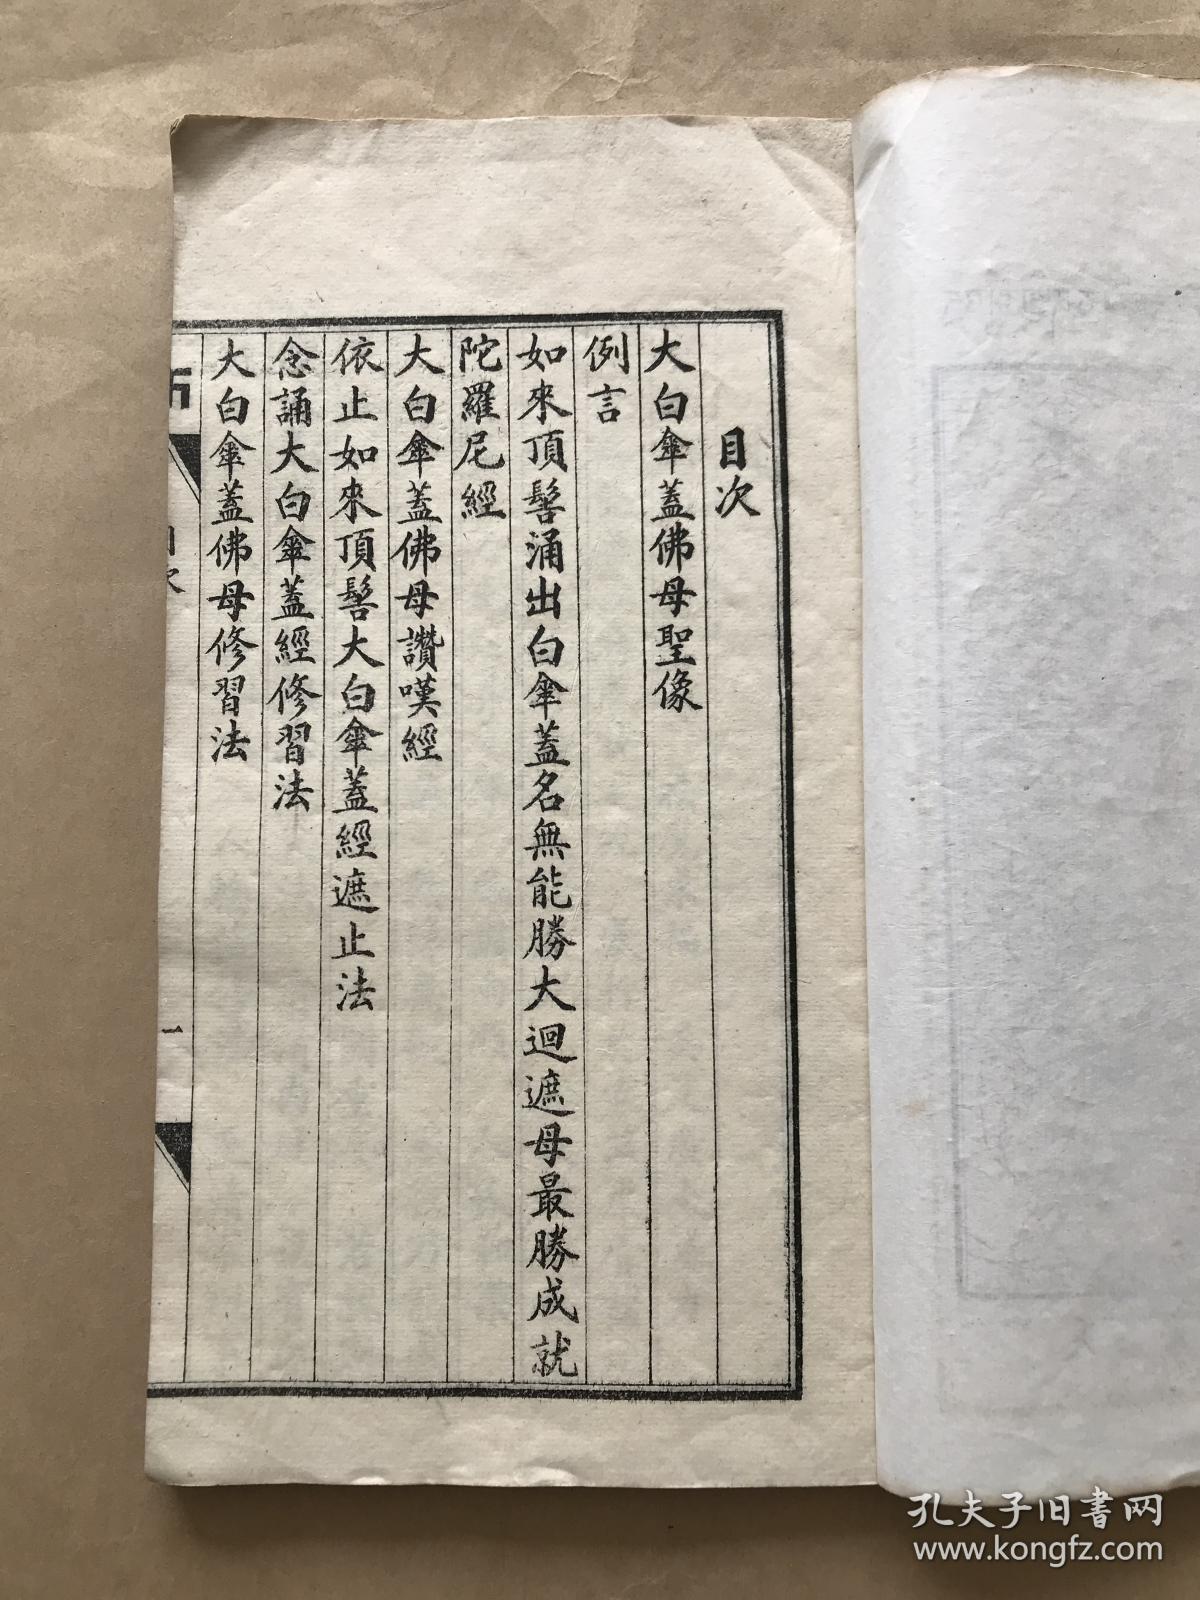 目次
大白傘蓋佛母聖像
例言
如來頂髻涌出白傘蓋名無能勝大迴遮母最勝成就
陀羅尼經
大白傘蓋佛母讚嘆經
依止如來頂髻大白傘蓋經遮止法
念誦大白傘蓋經修習法
大白傘蓋佛母修習法
目次
一
孔夫子旧书网
www.kongfz.com